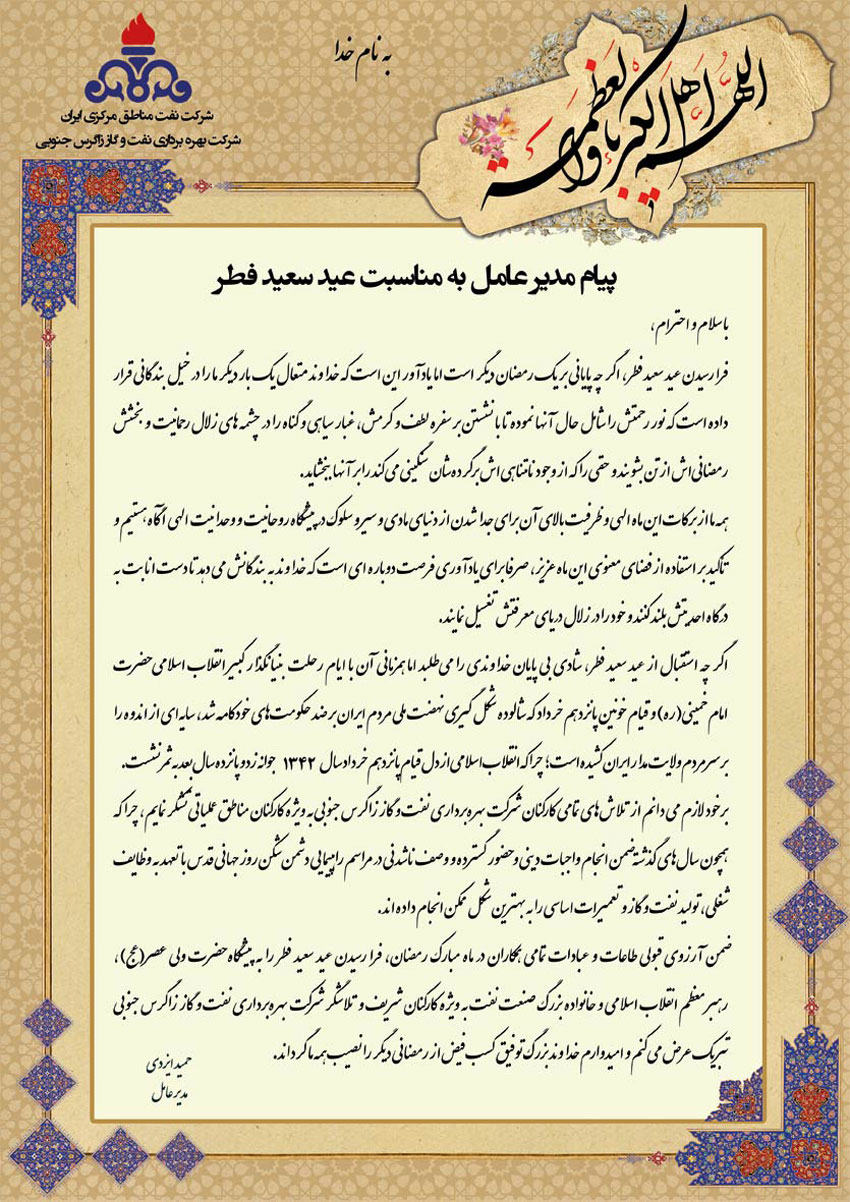 به نام خدا
اللهم اهل الکبریاء والعظمة
شرکت نفت مناطق مرکزی ایران
شرکت بهره برداری نفت و گاز زاگرس جنوبی
پیام مدیر عامل به مناسبت عید سعید فطر
با سلام و احترام،
فرا رسیدن عید سعید فطر، اگر چه پایانی بر یک رمضان دیگر است اما یادآور این است که خداوند متعال یک بار دیگر ما را در خیل بندگانی قرار
داده است که نور رحمتش را شامل حال آنها نموده تا با نشستن بر سفره لطف و کرمش، غبار سیاهی و گناه را در چشمه های زلال رحمانیت و بخشش
رمضانی اش از تن بشویند و حقی را که از وجود نامتناهی اش بر گرده شان سنگینی می کند را بر آنها ببخشاید.
همه ما از برکات این ماه الهی و ظرفیت بالای آن برای جدا شدن از دنیای مادی و سیر و سلوک در پیشگاه روحانیت و وحدانیت الهی آگاه هستیم و
تأکید بر استفاده از فضای معنوی این ماه عزیز، صرفا برای یادآوری فرصت دوباره ای است که خداوند به بندگانش می دهد تا دست انابت به
درگاه احدیتش بلند کنند و خود را در زلال دریای معرفتش تغسیل نمایند.
اگر چه استقبال از عید سعید فطر، شادی بی پایان خداوندی را می طلبد اما همزمانی آن با ایام رحلت بنیانگذار کبیر انقلاب اسلامی حضرت
امام خمینی(ره) و قیام خونین پانزدهم خرداد که شالوده شکل گیری نهضت ملی مردم ایران بر ضد حکومت های خودکامه شد، سایه ای از اندوه را
بر سر مردم ولایت مدار ایران کشیده است؛ چرا که انقلاب اسلامی از دل قیام پانزدهم خرداد سال ۱۳۴۲ جوانه زد و پانزده سال بعد به ثمر نشست.
بر خود لازم می دانم از تلاش های تمامی کارکنان شرکت بهره برداری نفت و گاز زاگرس جنوبی به ویژه کارکنان مناطق عملیاتی تشکر نمایم، چرا که
همچون سال های گذشته ضمن انجام واجبات دینی و حضور گسترده و وصف ناشدنی در مراسم راهپیمایی دشمن شکن روز جهانی قدس با تعهد به وظایف
شغلی، تولید نفت و گاز و تعمیرات اساسی را به بهترین شکل ممکن انجام داده اند.
ضمن آرزوی قبولی طاعات و عبادات تمامی همکاران در ماه مبارک رمضان، فرا رسیدن عید سعید فطر را به پیشگاه حضرت ولی عصر(عج)،
رهبر معظم انقلاب اسلامی و خانواده بزرگ صنعت نفت به ویژه کارکنان شریف و تلاشگر شرکت بهره برداری نفت و گاز زاگرس جنوبی
تبریک عرض می کنم و امیدوارم خداوند بزرگ توفیق کسب فیض از رمضانی دیگر را نصیب همه ما گرداند.
حمید ایزدی
مدیر عامل